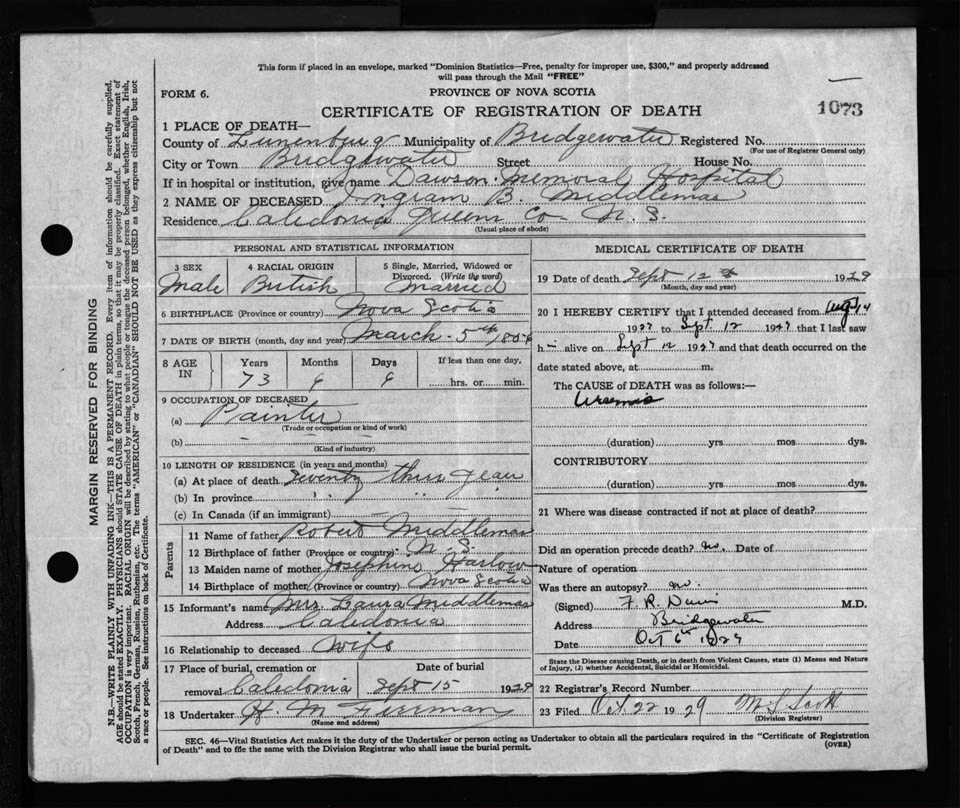 This form if placed in an envelope, marked "Dominion Statistics—Free, penalty for improper use, $300," and properly addressed
will pass through the Mail "FREE"
FORM 6. PROVINCE OF NOVA SCOTIA
CERTIFICATE OF REGISTRATION OF DEATH 1073
1 PLACE OF DEATH—
County of Lunenburg Municipality of Bridgewater Registered No.
(For use of Registrar General only)
City or Town Bridgewater Street House No.
If in hospital or institution, give name Dawson Memorial Hospital
2 NAME OF DECEASED Ingram B. Middlemas
Residence Caledonia Queens Co. N. S.
(Usual place of abode)
PERSONAL AND STATISTICAL INFORMATION
3 SEX 4 RACIAL ORIGIN 5 Single, Married, Widowed or Divorced. (Write the word)
Male British Married
6 BIRTHPLACE (Province or country) Nova Scotia
7 DATE OF BIRTH (month, day and year) March 5th 1856
8 AGE IN Years Months Days If less than one day,
73 6 hrs. or min.
9 OCCUPATION OF DECEASED
(a) Painter
(Trade or occupation or kind of work)
(b) — — —
(Kind of industry)
10 LENGTH OF RESIDENCE (in years and months)
(a) At place of death seventy three years
(b) In province " " "
(c) In Canada (if an immigrant)
Parents
11 Name of father Robert Middlemas
12 Birthplace of father (Province or country) N. S.
13 Maiden name of mother Josephine Harlow
14 Birthplace of mother (Province or country) Nova Scotia
15 Informant's name Mrs. Laura Middlemas
Address Caledonia
16 Relationship to deceased Wife
17 Place of burial, cremation or Date of burial
removal Caledonia Sept 15 1929
18 Undertaker H. M.
(Name and address)
MEDICAL CERTIFICATE OF DEATH
19 Date of death Sept 12 1929
(Month, day and year)
20 I HEREBY CERTIFY that I attended deceased from Aug 14
1929 to Sept. 12 1929 that I last saw
h— alive on Sept 12 1929 and that death occurred on the
date stated above, at m.
The CAUSE of DEATH was as follows:—
Uremia
(duration) yrs mos dys.
CONTRIBUTORY
(duration) yrs. mos dys.
21 Where was disease contracted if not at place of death?
Did an operation precede death? no. Date of
Nature of operation
Was there an autopsy? no.
(Signed) F. R. Davis M.D.
Address Bridgewater
Date Oct 6th 1929
State the Disease causing Death, or in death from Violent Causes, state (1) Means and Nature
of Injury, (2) whether Accidental, Suicidal or Homicidal.
22 Registrar's Record Number
23 Filed Oct 22 1929
(Division Registrar)
SEC. 46—Vital Statistics Act makes it the duty of the Undertaker or person acting as Undertaker to obtain all the particulars required in the "Certificate of Registration
of Death" and to file the same with the Division Registrar who shall issue the burial permit. (OVER)
MARGIN RESERVED FOR BINDING
N.B.—WRITE PLAINLY WITH UNFADING INK—THIS IS A PERMANENT RECORD. Every item of information should be carefully supplied.
AGE should be stated EXACTLY. PHYSICIANS should STATE CAUSE OF DEATH in plain terms, so that it may be properly classified. Exact statement of
OCCUPATION is very important. RACIAL ORIGIN will be described by stating to what people or tongue the deceased person belonged, whether English, Irish,
Scotch, French, German, Russian, Ruthenian, etc. The terms "AMERICAN" or "CANADIAN" SHOULD NOT BE USED as they express citizenship but not
a race or people. See instructions on back of Certificate.